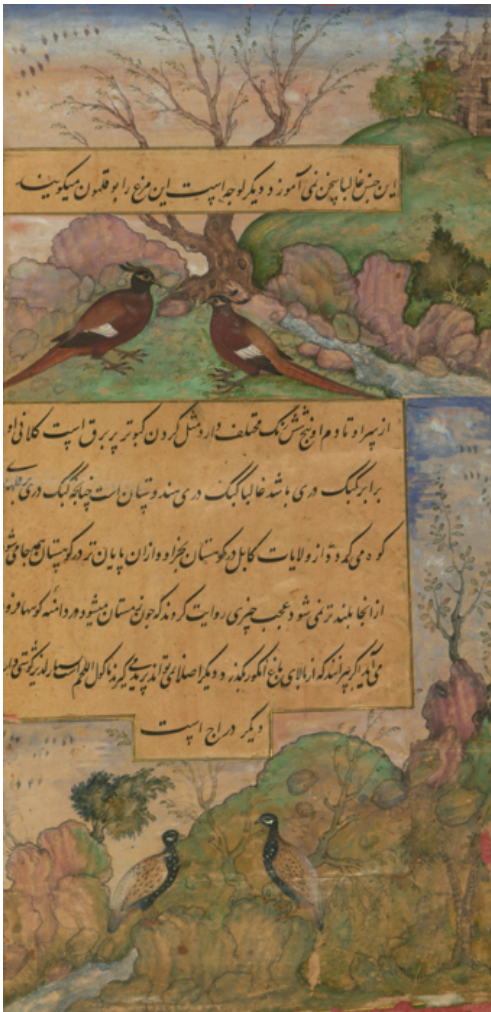 این جنس غالبا سخن نمی آموزد دیگر لوجه است این مرغ را بوقلمون میگویند
از سر او تا دم او پنج شش رنگ مختلف دارد مثل گردن کبوتر پر برق است کلانی او
برابر کبک دری باشد غالبا کبک دری هندوستان است چنانچه کبک دری
کوه می گردد از ولایات کابل در کوهستان بخراو و ازان پایان تر در کوهستان همه جا می شود
از انجا بلندتر نمی شود عجب چیزی روایت کردند که چون زمستان میشود در دامنه کوهها فرود
می آید اگر پرانند که از بالای باغ انگور بگذرد دیگر اصلا نمی تواند پرید می گیرند ماکول اللحم است بسیار لذیذ گوشتی دارد
دیگر دراج است